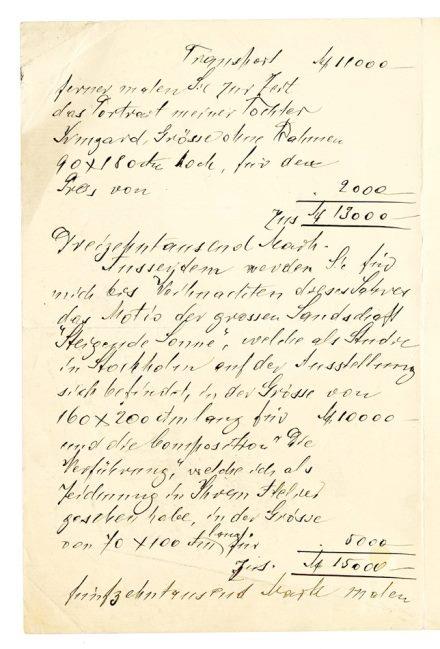 Transport M 11000 —
ferner malen Sie zur Zeit
das Portrait meiner Tochter
Irmgard, Grösse ohne Rahmen
90 x 180 ctm hoch, für den
Preis von 2000 —
Zus M 13000 —
Dreizehntausend Mark.
Ausserdem werden Sie für
mich bis Weihnachten dieses Jahres
das Motiv der grossen Landschaft
"Steigende Sonne", welche als Studie
in Stockholm auf der Ausstellung
sich befindet, in der Grösse von
160 x 200 ctm lang für M 10000 —
und die Composition "Die
Verführung", welche ich als
Zeichnung in Ihrem Atelier
gesehen habe, in der Grösse
von 70 x 100 ctm lang für 5000 —
Zus. M 15000 —
fünfzehntausend Mark malen